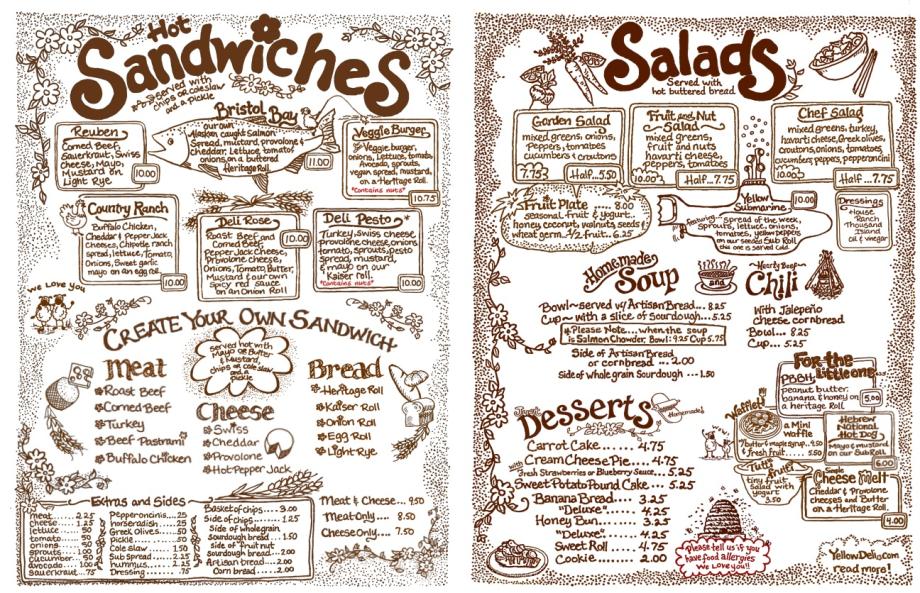 Hot
Sandwiches
served with
chips or coleslaw
and a pickle
Reuben
Corned Beef,
Sauerkraut, Swiss
cheese, Mayo,
Mustard on
Light Rye
10.00
Bristol Bay
our own
Alaskan caught Salmon
Spread, mustard, provolone &
cheddar, lettuce, tomato &
onions on a buttered
Heritage Roll
11.00
Veggie Burger
Veggie burger,
onions, Lettuce, tomato,
avocado, sprouts,
vegan spread, mustard,
on a Heritage Roll
*contains nuts*
10.75
Country Ranch
Buffalo Chicken,
Cheddar & Pepper Jack
Cheeses, Chipotle ranch
spread, lettuce, Tomato,
Onions, Sweet garlic
mayo on an egg roll
10.00
Deli Rose
Roast Beef and
Corned Beef,
Pepper Jack Cheese,
Provolone cheese,
Onions, Tomato, Butter,
Mustard & our own
Spicy red sauce
on an Onion Roll
10.00
Deli Pesto*
Turkey, Swiss cheese,
provolone cheese, onions,
tomato, sprouts, pesto
spread, mustard,
& mayo on our
Kaiser roll.
*contains nuts*
10.00
We Love You
Create Your Own Sandwich
served hot with
Mayo or Butter
& Mustard,
chips or cole slaw
and a
pickle
Meat
Roast Beef
Corned Beef
Turkey
Beef Pastrami
Buffalo Chicken
Cheese
Swiss
Cheddar
Provolone
Hot Pepper Jack
Bread
Heritage Roll
Kaiser Roll
Onion Roll
Egg Roll
Light Rye
Extras and Sides
meat........2.25
cheese.....1.25
lettuce.....50
tomato.....50
onions.....50
sprouts....1.00
cucumber..50
avocado...1.00
sauerkraut...75
Pepperoncinis....25
horseradish....25
Greek Olives....50
pickle.....50
Cole slaw.....1.50
Sub Spread.....50
hummus.....2.25
Dressing.....75
Basket of chips....3.00
Side of chips....1.25
Side of whole grain
sourdough bread....1.50
Side of fruit nut
Sourdough bread....2.00
Artisan bread....2.00
Corn bread....2.00
Meat & Cheese... 9.50
Meat Only.... 8.50
Cheese Only.... 7.50
Salads
Served with
hot buttered bread
Garden Salad
mixed greens, onions,
Peppers, tomatoes
cucumbers & croutons
7.75
Half...5.50
Fruit and Nut
Salad
mixed greens,
fruit and nuts
havarti cheese,
peppers, tomatoes
10.00
Half...7.75
Chef Salad
mixed greens, turkey,
havarti cheese, Greek olives,
croutons, onions, tomatoes,
cucumbers, peppers, pepperoncini
10.00
Half...7.75
Fruit Plate 8.00
seasonal fruit & yogurt..
honey, coconut, walnuts seeds &
wheat germ.. 1/2 fruit.. 6.25
Yellow
Submarine
10.00
featuring
spread of the week,
sprouts, lettuce, onions,
tomatoes, yellow peppers
on our seeded Sub Roll
this one is served cold.
Dressings
House
Ranch
Thousand
Island
oil & vinegar
Homemade
Soup
and
Hearty Beef
Chili
Bowl~served w/ Artisan Bread... 8.25
Cup~ with a slice of sourdough...5.25
*Please Note.... when the soup
is Salmon Chowder, Bowl: 9.25 Cup 5.75
Side of Artisan Bread
or cornbread ... 2.00
Side of whole grain Sourdough ...1.50
With Jalepeño
cheese cornbread
Bowl... 8.25
Cup... 5.25
For the
Little ones
PBBH
peanut butter,
banana & honey on
a heritage Roll.
5.00
Waffle!
a Mini
Waffle
Butter & maple syrup...4.50
& fresh fruit..... 5.50
Hebrew
National
Hot Dog
Mayo & mustard
on our Sub Roll
6.00
Tutti fruiti
tiny fruit
Salad with
yogurt
4.50
Simple
Cheese Melt
Cheddar & Provolone
cheeses and Butter
on a Heritage Roll.
4.00
Desserts
Homemade!
Carrot Cake..... 4.75
Cream Cheese Pie.... 4.75
with Fresh Strawberries or Blueberry Sauce... 5.25
Sweet Potato Pound Cake.... 5.25
Banana Bread.... 3.25
"Deluxe"..... 4.25
Honey Bun..... 3.25
"Deluxe"..... 4.25
Sweet Roll .... 4.75
Cookie...... 2.00
Please tell us if you
have food allergies
We Love you!!
YellowDeli.com
read more!